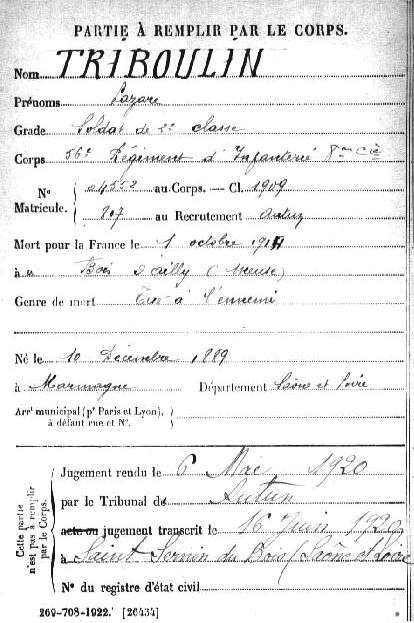 PARTIE À REMPLIR PAR LE CORPS.
Nom TRIBOULIN
Prénoms Lazare
Grade Soldat de 2e classe
Corps 56e Régiment d'Infanterie 8me Cie
No Matricule. 04552 au Corps. — Cl. 1909
807 au Recrutement Autun
Mort pour la France le 1 octobre 1914
à Bois d'ailly (Meuse)
Genre de mort Tué à l'ennemi
Né le 10 Décembre 1889
à Marmagne Département Saône et Loire
Arrt municipal (pr Paris et Lyon),
à défaut rue et No.
Cette partie
n'est pas à remplir
par le Corps.
Jugement rendu le 6 Mai 1920
par le Tribunal de Autun
acte ou jugement transcrit le 16 Juin 1920
à Saint Sernin du Bois (Saône et Loire
No du registre d'état civil
269-708-1922. [26434]